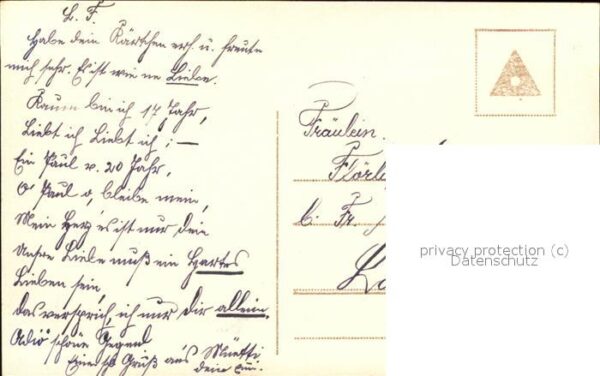 L. F.
Habe dein Kärtchen erh. u. freute
mich sehr. Es ist wie ne Liebe.
Kaum bin ich 17 Jahr,
Liebt ich Liebt ich; —
Ein Paul v. 20 Jahr,
O Paul o, bleibe mein,
Mein Herz es ist nur dein
Unsre Liebe muß ein Hartes
Lieben sein,
Das versprich, ich nur dir allein.
Adiö schöne Gegend
Eine Gruß aus
dein
Fräulein
b. Fr.
privacy protection (c)
Datenschutz